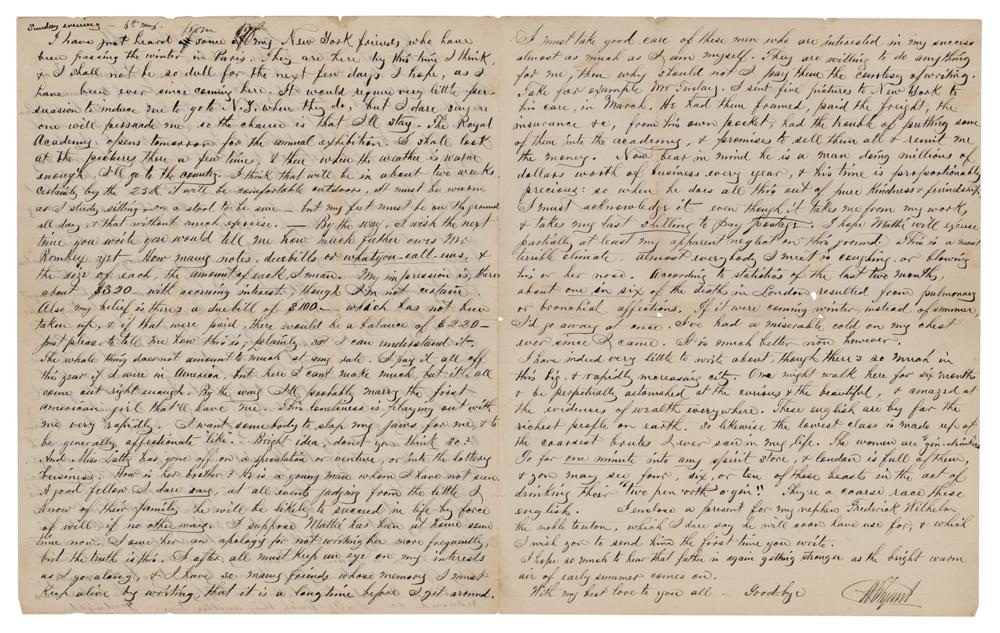 Sunday evening - 6th May.
I have just heard from some of my New York friends who have
been passing the winter in Paris. They are here by this time I think,
& I shall not be so dull for the next few days I hope, as I
have been ever since coming here. It would require very little per-
suasion to induce me to go to N.Y. when they do, but I dare say no
one will persuade me so the chance is that I'll stay. The Royal
Academy opens tomorrow for the annual exhibition. I shall look
at the pictures there a few times, & then when the weather is warm
enough I'll go to the country. I think that will be in about two weeks.
Certainly by the 25th I will be comfortable outdoors. It must be warm
as I study sitting on a stool to be sure - but my feet must be on the ground
all day, & that without much exercise. - By the way, I wish the next
time you write you would tell me how much father owes Mr
Romkey yet - How many notes, duebills or whatyou-call-ems, &
the size of each, the amount of each I mean. My impression is, there's
about $320 - with accruing interest, though I'm not certain
Also my belief is there's a due bill of $100.- which has not been
taken up, & if that were paid, there would be a balance of $220-
just please to tell me how this is; plainly so I can understand it.
The whole thing does not amount to much at any rate. I pay it all off
this year if I were in America, but here I cant make much, but it'll all
come out right enough. By the way I'll probably marry the first
american girl that'll have me. This loneliness is playing out with
me very rapidly. I want somebody to slap my jaws for me, & to
be generally affectionate like. Bright idea, dont you think so?
And Miss has gone off on a speculation or venture, or into the lottery
business. How is her brother? He is a young man whom I have not seen.
A good fellow I dare say, at all events judging from the little I
know of their family he will be likely to succeed in life by force
of will if no other way. I suppose Mattie has been at home some
time now. I owe her an apology for not writing her more frequently,
but the truth is this. I after all must keep an eye on my interests
as I go along, & I have so many friends whose memory I must
keep alive by writing, that it is a long time before I get around.
I must take good care of these men who are interested in my success
almost as much as I am myself. They are willing to do anything
for me, then why should not I pay them the courtesy of writing.
Take for example Mr . I sent five pictures to New York to
his care, in March. He had them framed, paid the freight, the
insurance &c, from his own pocket, had the trouble of putting some
of them into the academy, & promises to sell them all & remit me
the money. Now bear in mind he is a man doing millions of
dollars worth of business every year, & his time is proportionably
precious: so when he does all this out of pure kindness & friendship
I must acknowledge it even though it takes me from my work,
& takes my last shilling to pay postage. I hope Mattie will excuse
partially at least my apparent neglect on this ground. This is a most
terrible climate, almost everybody I meet is coughing or blowing
his or her nose. According to statistics of the last two months,
about one in six of the deaths in London resulted from pulmonary
or bronchial affections. If it were coming winter, instead of summer,
I'd go away at once. I've had a miserable cold on my chest
ever since I came. It is much better now however.
I have indeed very little to write about, though there's so much in
this big & rapidly increasing city. One might walk here for six months
& be perpetually astonished at the curious & the beautiful, & amazed at
the evidences of wealth everywhere. These english are by far the
richest people on earth. So likewise the lowest class is made up of
the coarsest brutes I ever saw in my life. The women are gin-drinkers
Go for one minute into any spirit store, & London is full of them,
& you may see four, six, or ten of these beasts in the act of
drinking their "two pen'orth o'gin." They're a coarse race these
english. I enclose a present for my nephew Frederick Wilhelm,
the noble teuton, which I dare say he will soon have use for, & which
I wish you to send him the first time you write.
I hope so much to hear that father is again getting stronger as the bright warm
air of early summer comes on.
With my best love to you all - Goodbye